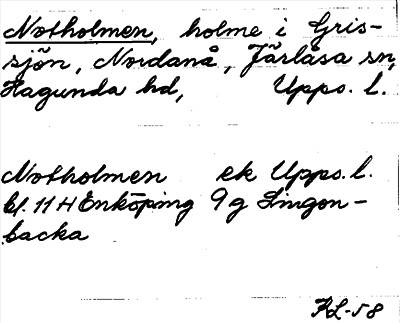 Notholmen, holme i Gris-
sjön, Nordanå, Järlåsa sn,
Hagunda hd, Upps. l.
Notholmen ek Upps. l.
bl. 11 H Enköping 9 g Lingon-
backa
RL-58